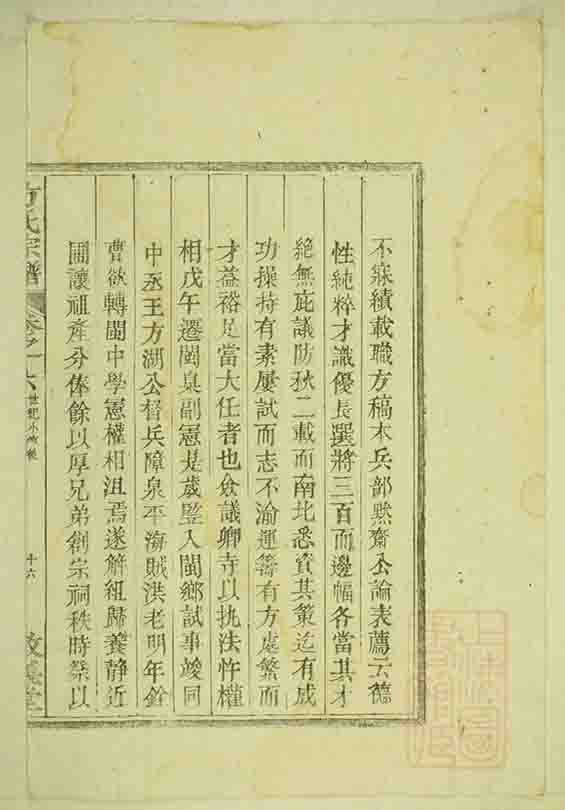 不寐績載職方稿本兵部默齋公論表薦云德
性純粹才識優長選將三百而邊幅各當其才
絕無庇議防秋二載而南北悉資其策迄有成
功操持有素屢試而志不渝運籌有方處繁而
才益裕足當大任者也僉議卿寺以执法忤權
相戊午遷閩臬副憲是歲監入閩鄉試事竣同
中丞王方湖公督兵障泉平海賊洪老明年銓
曹欲轉閩中學憲權相沮焉遂解組歸養静近
圃讓祖產分俸餘以厚兄弟創宗祠秩時祭以
方氏宗譜
卷之十六
世紀小傳
十六